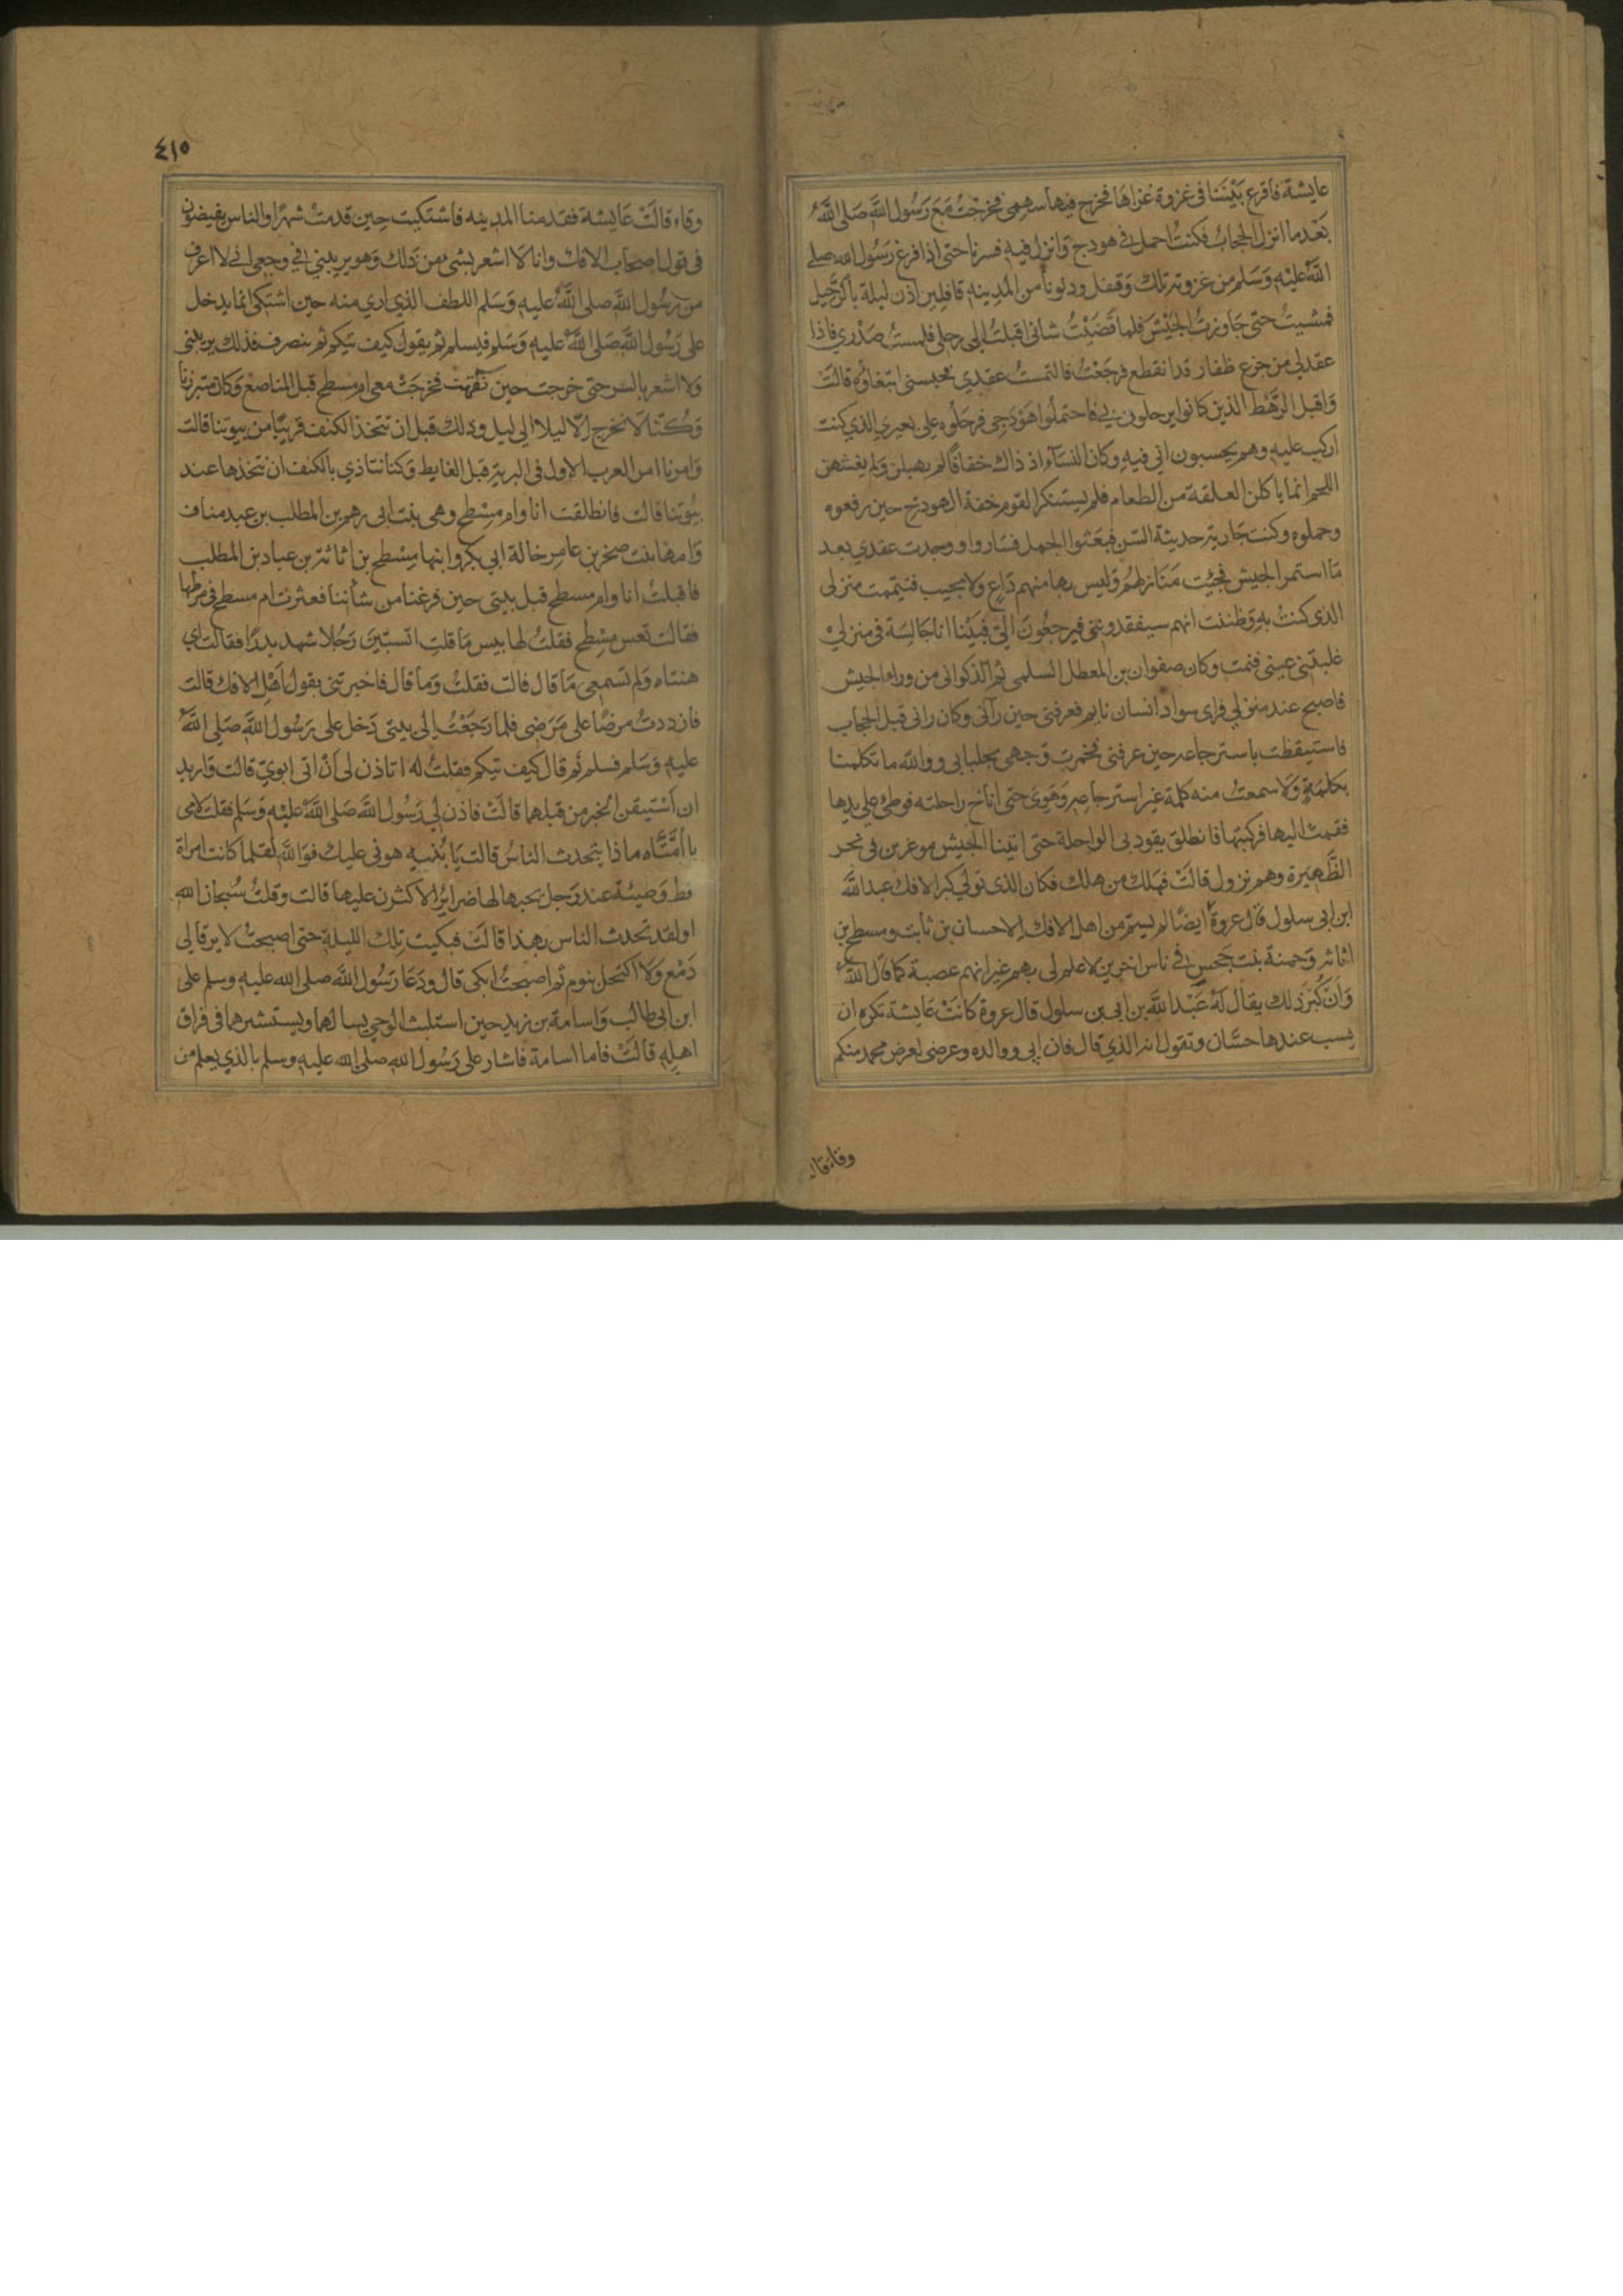 عايشة فاقرع بَيْنَنا فى غزوة غزاها فخرج فيها سهمى فخرجْتُ مَعَ رَسُول اللَّه صَلى اللَّهُ
بَعْدما انزل الحجابُ فكنتُ احمل فى هودج وانزل فيه فسرنا حتى اذا فرغ رَسُول الله صلى
اللَّهُ عليْهِ وَسَلم من غزوته تلك وَقفل ودنونا من المدينه قافلين اذن ليلة بالرَّحيل
فمشيتُ حتى جَاوزتُ الجَيْشَ فلما قَضَيْتُ شانى اقبلتُ الى رحلى فلمستُ صَدْري فاذا
عقد لي من جزع ظفار قد انقطع فرجَعْتُ فالتمستُ عقدي فحبسنى ابتغاؤه قالتْ
وَاقبل الرَّهْط الذين كانوا يرحلون بي فاحتملُوا هَوْدَجى فرحَلُوه على بعيري الذي كنت
اركب عليه وهم يحسبون اني فيهِ وكان النسآء اذ ذاك خفافًا لم يهبلن وَلم يغشهن
اللحم انما ياكلن العلقة من الطعام فلم يستنكر القوم خفة الهودج حين رفعوه
وحملوه وكنت جَارية حديثة السّن فبعَثوا الجمل فسَاروا ووجدت عقدي بعد
مَا استمر الجيش فجئِت مَنَازلهُم وَليس بها منهم دَاع ولا مجيب فتيممت منزلى
الذى كنتُ بهِ وَظننت انهم سيفقدونى فيرجعُونَ اليّ فبَيْنا انا جَالِسَة فى منزليْ
غلبتنى عينى فنمت وكان صفوان بن المعطل السلمى ثم الذكوانى من وراء الجيش
فاصبح عند منزلي فراى سواد انسان نايم فعرفنى حين رآنى وكان رانى قبل الحجاب
فاستيقظت باسترجاعه حين عرفنى فخمرت وَجهى بجلبابى ووالله ما تكلمنا
بكلمَةٍ وَلا سمعتُ منه كلمة غير استرجاعه وَهَوِىَ حتى اناخ راحلته فوطئ على يدها
فقمت اليها فركبتها فانطلق يقود بى الراحلة حتى اتينا الجيش موغرين فى نحر
الظَّهيَرة وهم نزول قالَتْ فهَلك من هلك فكان الذى تولي كبر الافك عبد اللَّه
ابن ابى سلول قال عروةُ ايضًا لم يسم من اهل الافك الا حسان بن ثابت ومسطح بن
اثاثه وَحمنة بنت جَحش فى ناس اخرين لا علم لى بهم غير انهم عصبة كما قال اللَّه
وَانّ كُبْرَ ذلك يقال لهُ عَبْد اللَّه بن ابى بن سلول قال عروة كانَتْ عَايشة تكره ان
يسب عندها حسَّان وتقول انه الذي قال فان ابى ووالده وعرضى لعرض محمد منكم
وقاء قال
٤١٥
وقاء قالَتْ عَايشة فقدمنا المدينه فاشتكيت حِين قدمتُ شهرًا والناس يفيضون
فى قول اصحاب الافك وانا لا اشعر بشىء من ذلك وَهو يريبني في وجعى اني لا اعرف
من رسُول اللَّه صلى اللَّهُ عليهِ وَسَلم اللطف الذي ارى منه حين اشتكى انما يدخل
على رَسُول اللَّه صَلى اللَّهُ عليهِ وَسَلم فيسلم ثم يقول كيف تيكم ثم ينصرف فذلك يريبنى
وَلا اشعر بالسر حتى خرجت حين نقهت فخرجَتْ معى ام مسطح قبل المناصع وَكان متبرزنا
وَكُنّا لا نخرج اِلّا ليلا الى ليل وذلك قبل ان نتخذ الكنف قريبًا من بيوتنا قالت
وَامرنا امر العرب الاول فى البرية قبل الغايط وَكنا نتاذي بالكنف ان نتخذها عند
بيُوتنا قالت فانطلقت انا وام مِسْطح وهى بنت ابى رهم بن المطلب بن عبد مناف
وَامها بنت صخر بن عامر خالة ابي بكر وابنها مِسْطح بن اثاثة بن عباد بن المطلب
فاقبلتُ انا وام مسطح قبل بيتى حين فرغنا من شأننا فعثرت ام مسطح فى مرطها
فقالت تعس مِسْطح فقلتُ لها بيس مَا قلتِ اتسبّينَ رَجُلا شهد بدرًا فقالت اي
هنتاه وَلم تسْمعى مَا قال قالت فقلتُ وَما قال فاخبرتنى بقول اهْل الافك قالت
فازددتُ مرضًا على مَرَضى فلما رَجَعْتُ اِلى بيتى دَخل على رَسُول اللَّه صَلى اللَّهُ
عليهِ وَسَلم فسلم ثم قال كيف تيكم فقلتُ له اتاذن لى اَنْ اتى ابويّ قالت واريد
ان اَسْتيقن الخبر من قبلهما قالَتْ فاذن لي رَسُول اللَّه صَلى اللَّهُ عليْهِ وَسَلم فقلت لامى
يا اُمَّتَاه ماذا يتحدث الناسُ قالت يَا بُنيه هونى عليك فوَاللَّهِ لقلما كانت امراة
قط وَضيئة عند رَجل يحبها لها ضراير اِلا كثرن عليها قالت وقلتُ سُبحان الله
اولقد تحدث الناس بهذا قالَتْ فبكيت تِلك الليلة حتى اصبحتُ لا يرقا لى
دَمْع وَلا اكتحل بنوم ثم اصبحتُ ابكى قال ودَعَا رَسُول اللَّه صلى الله عليهِ وسلم على
ابن ابى طالب وَاسامة بن زيد حين استلبث الوحي يسالهما ويستشيرهما فى فراق
اهلِه قالَتْ فاما اسامة فاشار على رَسُول الله صلى الله عليهِ وسلم بالذي يعلم من